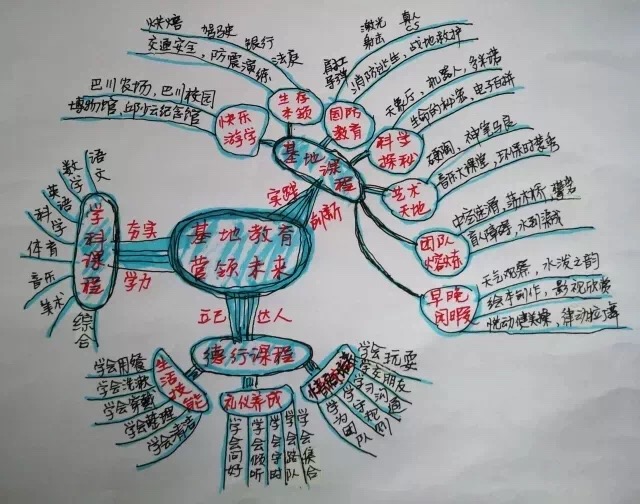 烘焙 驾驶 银行
交通安全、防震演练 法庭
生存
本领
巴川农场、巴川校园
博物馆、邱少云纪念馆
快乐
游学
激光 真人
射击 CS
消防逃生、战地救护
国防
教育
天象厅、机器人、多米诺
生命的秘密、电子百拼
科学
探秘
硬陶、神笔马良
音乐大课堂、环保时装秀
艺术
天地
盲人障碍、水到渠成
团队
熔炼
天气观察、水泼之韵
绘本制作、影视欣赏
悦动健美操、律动拉丁舞
早晚
闲暇
基地 课程
实践
创新
基地教育
营领未来
夯实
学力
学科课程
语文
数学
英语
科学
体育
音乐
美术
综合
立己 达人
德行课程
生活技能
学会用餐
学会洗漱
学会穿戴
学会整理
学会清洁
礼仪养成
学会问好
学会倾听
学会守时
学会路队
学会集合
学会玩耍
学会交朋友
学习沟通